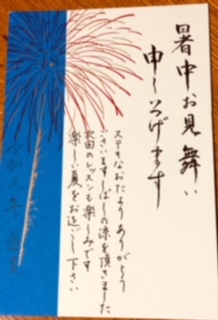 暑中お見舞い
申し上げます
ステキなおたよりありがとう
ございます しばしの涼を頂きました
次回のレッスンも楽しみです
楽しい夏をお過ごし下さい
令和元年 盛夏